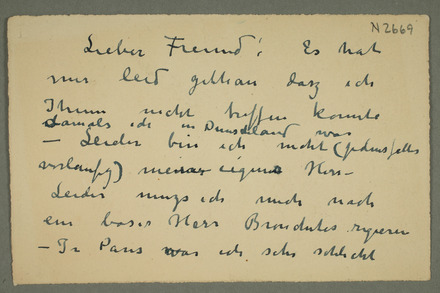 N2669
Lieber Freund! Es hat
mir leid gethan dasz ich
Ihnen nicht treffen konnte
damals ich in Deutschland war
– Leider bin ich nicht (jedenfalls
vorlaufig) meiner eigene Herr –
Leider musz ich mich nach
ein boser Herr regieren
– In Paris was ich sehr schlecht